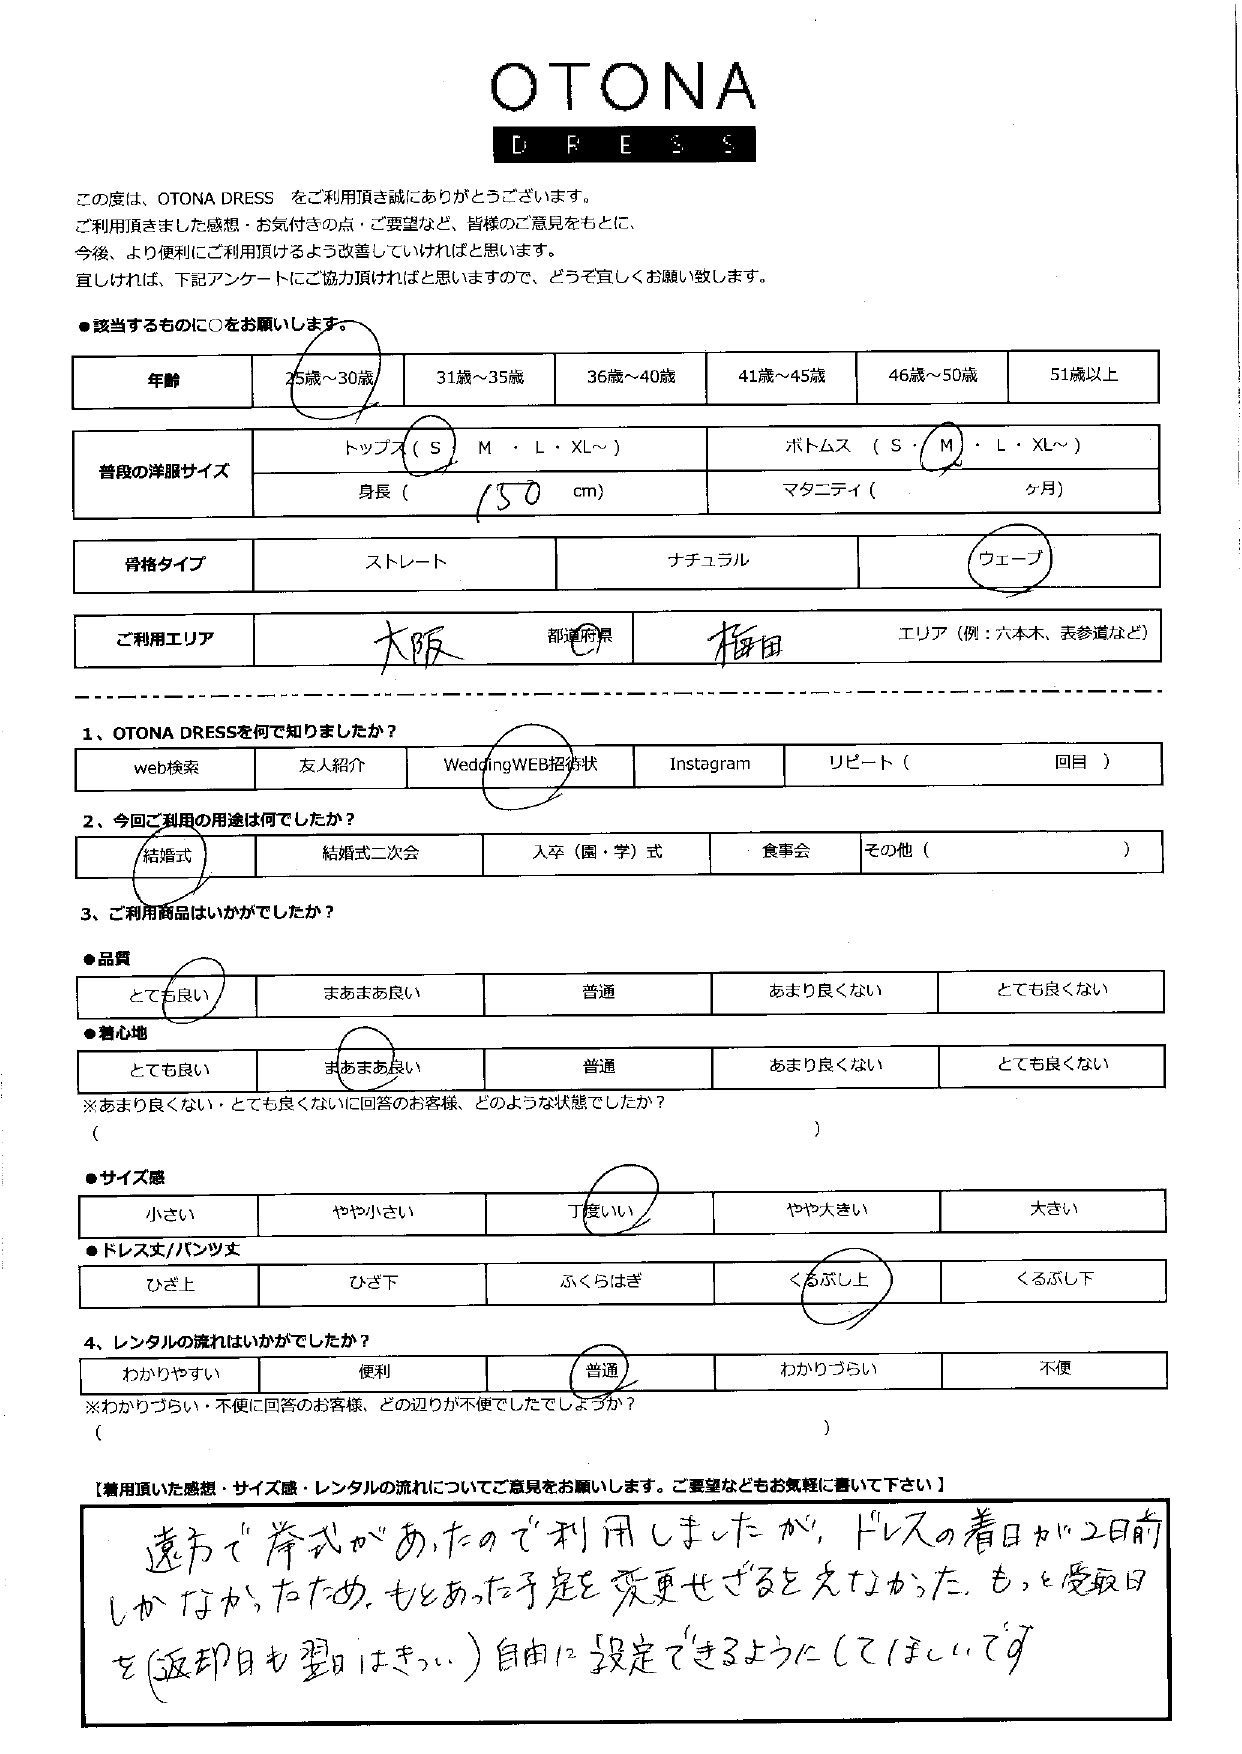 OTONA
DRESS
この度は、OTONA DRESS をご利用頂き誠にありがとうございます。
ご利用頂きました感想・お気付きの点・ご要望など、皆様のご意見をもとに、
今後、より便利にご利用頂けるよう改善していければと思います。
宜しければ、下記アンケートにご協力頂ければと思いますので、どうぞ宜しくお願い致します。
●該当するものに○をお願いします。
年齢 25歳～30歳 31歳～35歳 36歳～40歳 41歳～45歳 46歳～50歳 51歳以上
普段の洋服サイズ トップス ( S M ・ L ・ XL～ ) ボトムス ( S ・ M ・ L ・ XL～ )
身長 ( 150 cm) マタニティ ( ヶ月)
骨格タイプ ストレート ナチュラル ウェーブ
ご利用エリア 大阪 都道府県 梅田 エリア（例：六本木、表参道など）
1、OTONA DRESSを何で知りましたか？
web検索 友人紹介 WeddingWEB招待状 Instagram リピート ( 回目 )
2、今回ご利用の用途は何でしたか？
結婚式 結婚式二次会 入卒（園・学）式 食事会 その他 ( )
3、ご利用商品はいかがでしたか？
●品質
とても良い まあまあ良い 普通 あまり良くない とても良くない
●着心地
とても良い まあまあ良い 普通 あまり良くない とても良くない
※あまり良くない・とても良くないに回答のお客様、どのような状態でしたか？
( )
●サイズ感
小さい やや小さい 丁度いい やや大きい 大きい
●ドレス丈/パンツ丈
ひざ上 ひざ下 ふくらはぎ くるぶし上 くるぶし下
4、レンタルの流れはいかがでしたか？
わかりやすい 便利 普通 わかりづらい 不便
※わかりづらい・不便に回答のお客様、どの辺りが不便でしたでしょうか？
( )
【着用頂いた感想・サイズ感・レンタルの流れについてご意見をお願いします。ご要望などもお気軽に書いて下さい】
遠方で挙式があったので利用しましたが、ドレスの着日が2日前
しかなかったため、もとあった予定を変更せざるをえなかった。もっと受取日
を(返却日も翌日はきつい)自由に設定できるようにしてほしいです